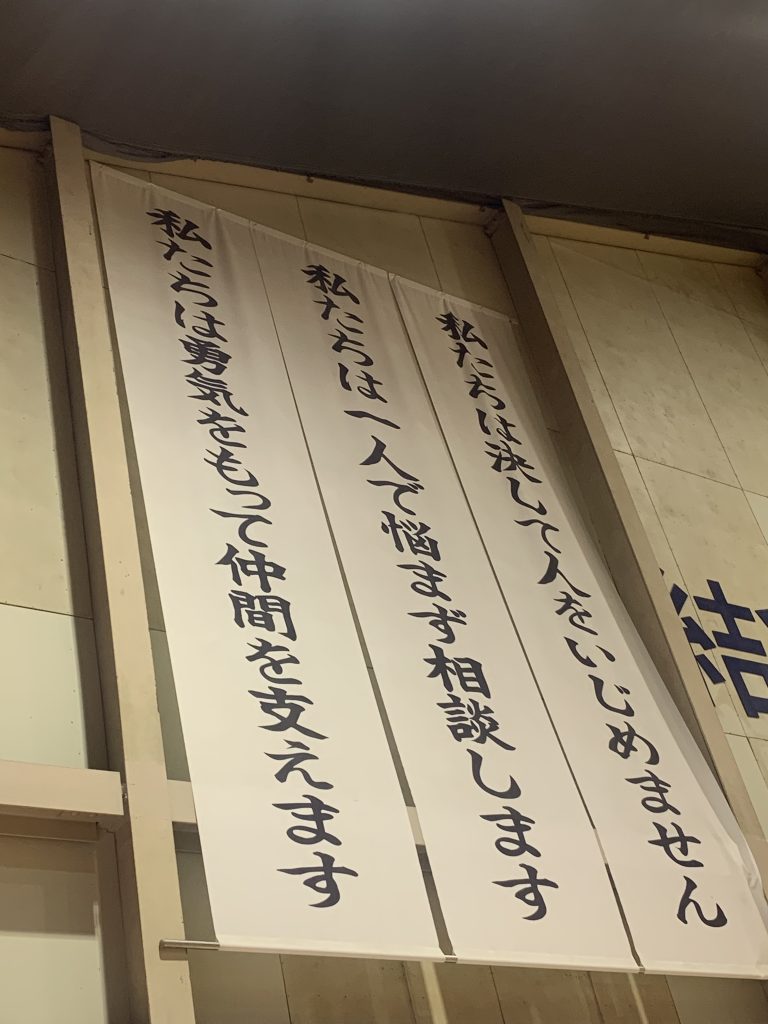 私たちは決して人をいじめません
私たちは一人で悩まず相談します
私たちは勇気をもって仲間を支えます